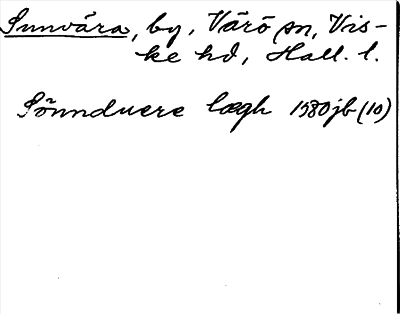 Sunvära, by, Värö sn, Vis-
ke hd, Hall. l.
Sönnduere lægh 1580 jb (10)